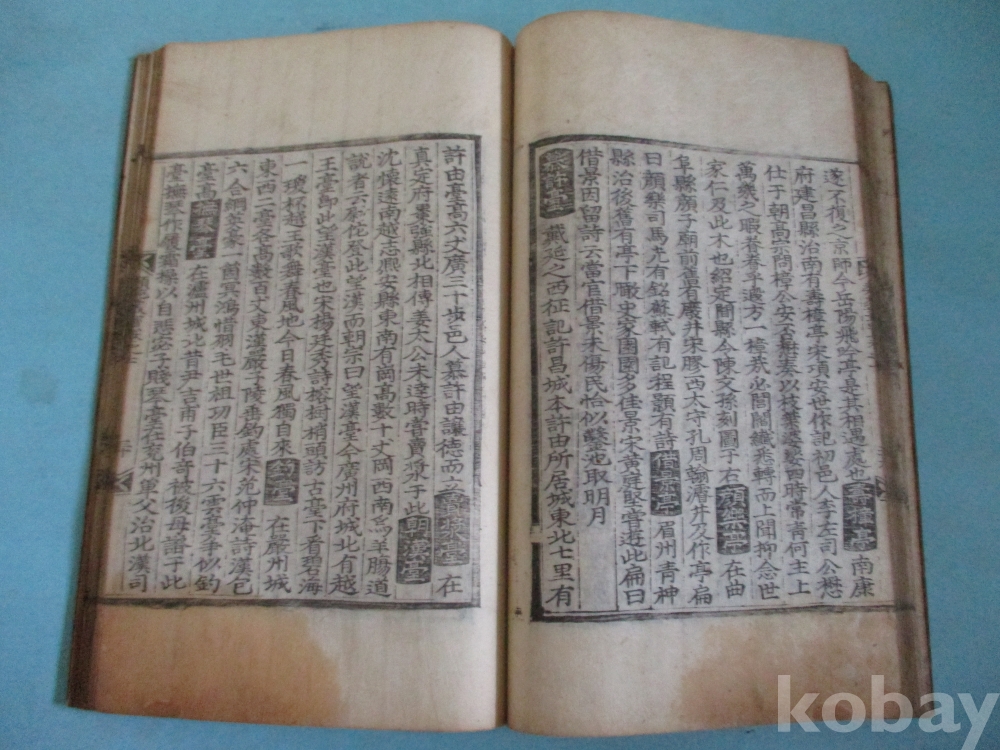 遂不復之京師今岳陽飛今亭是其相遇處也壽樟亭南康
府建昌縣治南有壽樟亭宋項安世作記初邑人李左司公懋
仕于朝高宗問樟公安否懋奏以枝葉婆娑四時常靑何主上
萬幾之暇眷眷乎遐方一樟哉必閭閻纖悉轉而上聞抑念世
家仁及此木也紹定間縣令陳文孫刻圖于右顔樂亭在曲
阜縣顔子廟前舊有廢井宋膠西太守孔周翰濬井及作亭扁
曰顔樂司馬光有銘蘇軾有記程顥有詩借景亭眉州靑神
縣治後舊有亭下瞰史家園圃多佳景宋黄庭堅嘗遊此扁曰
借景因留詩云當官借景未傷民恰似鑿池取明月
戴延之西征記許昌城本許由所居城東北七里有
許由臺高六丈廣三十步邑人慕許由讓德而立賣漿臺在
真定府棗强縣北相傳姜太公未達時嘗賣漿于此朝漢臺
沈懷遠南越志熙安縣東南有崗高數十丈岡西南爲羊腸道
說者云尉佗登此望漢而朝宗曰望漢臺今廣州府城北有越
王臺即此望漢臺也宋楊廷秀詩榕樹梢頭訪古臺下看碧海
一瓊杯越王歌舞春風地今日春風獨自來釣臺在嚴州城
東西二臺各高數百丈東漢嚴子陵垂釣處宋范仲淹詩漢包
六合網英豪一箇冥鴻惜羽毛世祖功臣三十六雲臺爭似釣
臺高在瀘州城北昔尹吉甫子伯奇被後母譖于此
臺撫琴作履霜操以自悲宓子賤琴臺在兗州單父治北漢司
kobay